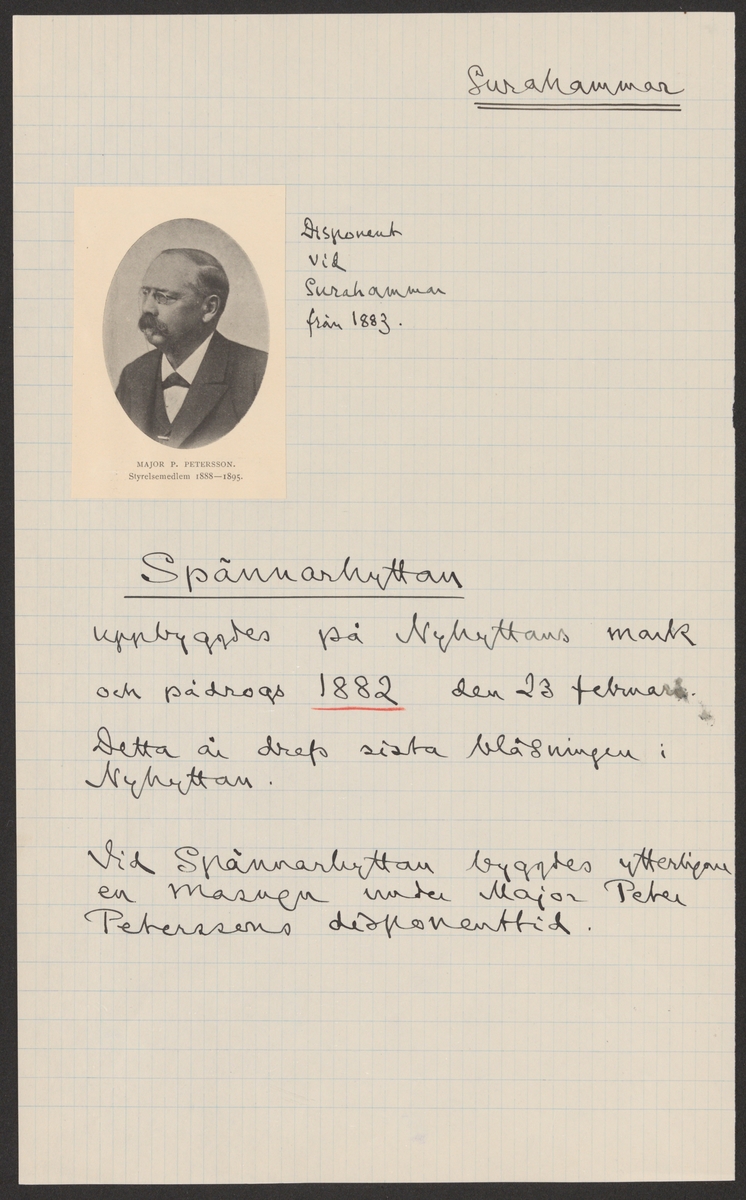 Surahammar
Disponent
vid
Surahammar
från 1883.
MAJOR P. PETERSSON.
Styrelsemedlem 1888—1895.
Spännarhyttan
uppbyggdes på Nyhyttans mark
och pådrogs 1882 den 23 februari.
Detta år drefs sista blåsningen i
Nyhyttan.
Vid Spännarhyttan byggdes ytterligare
en masugn under Major Peter
Peterssons disponenttid.